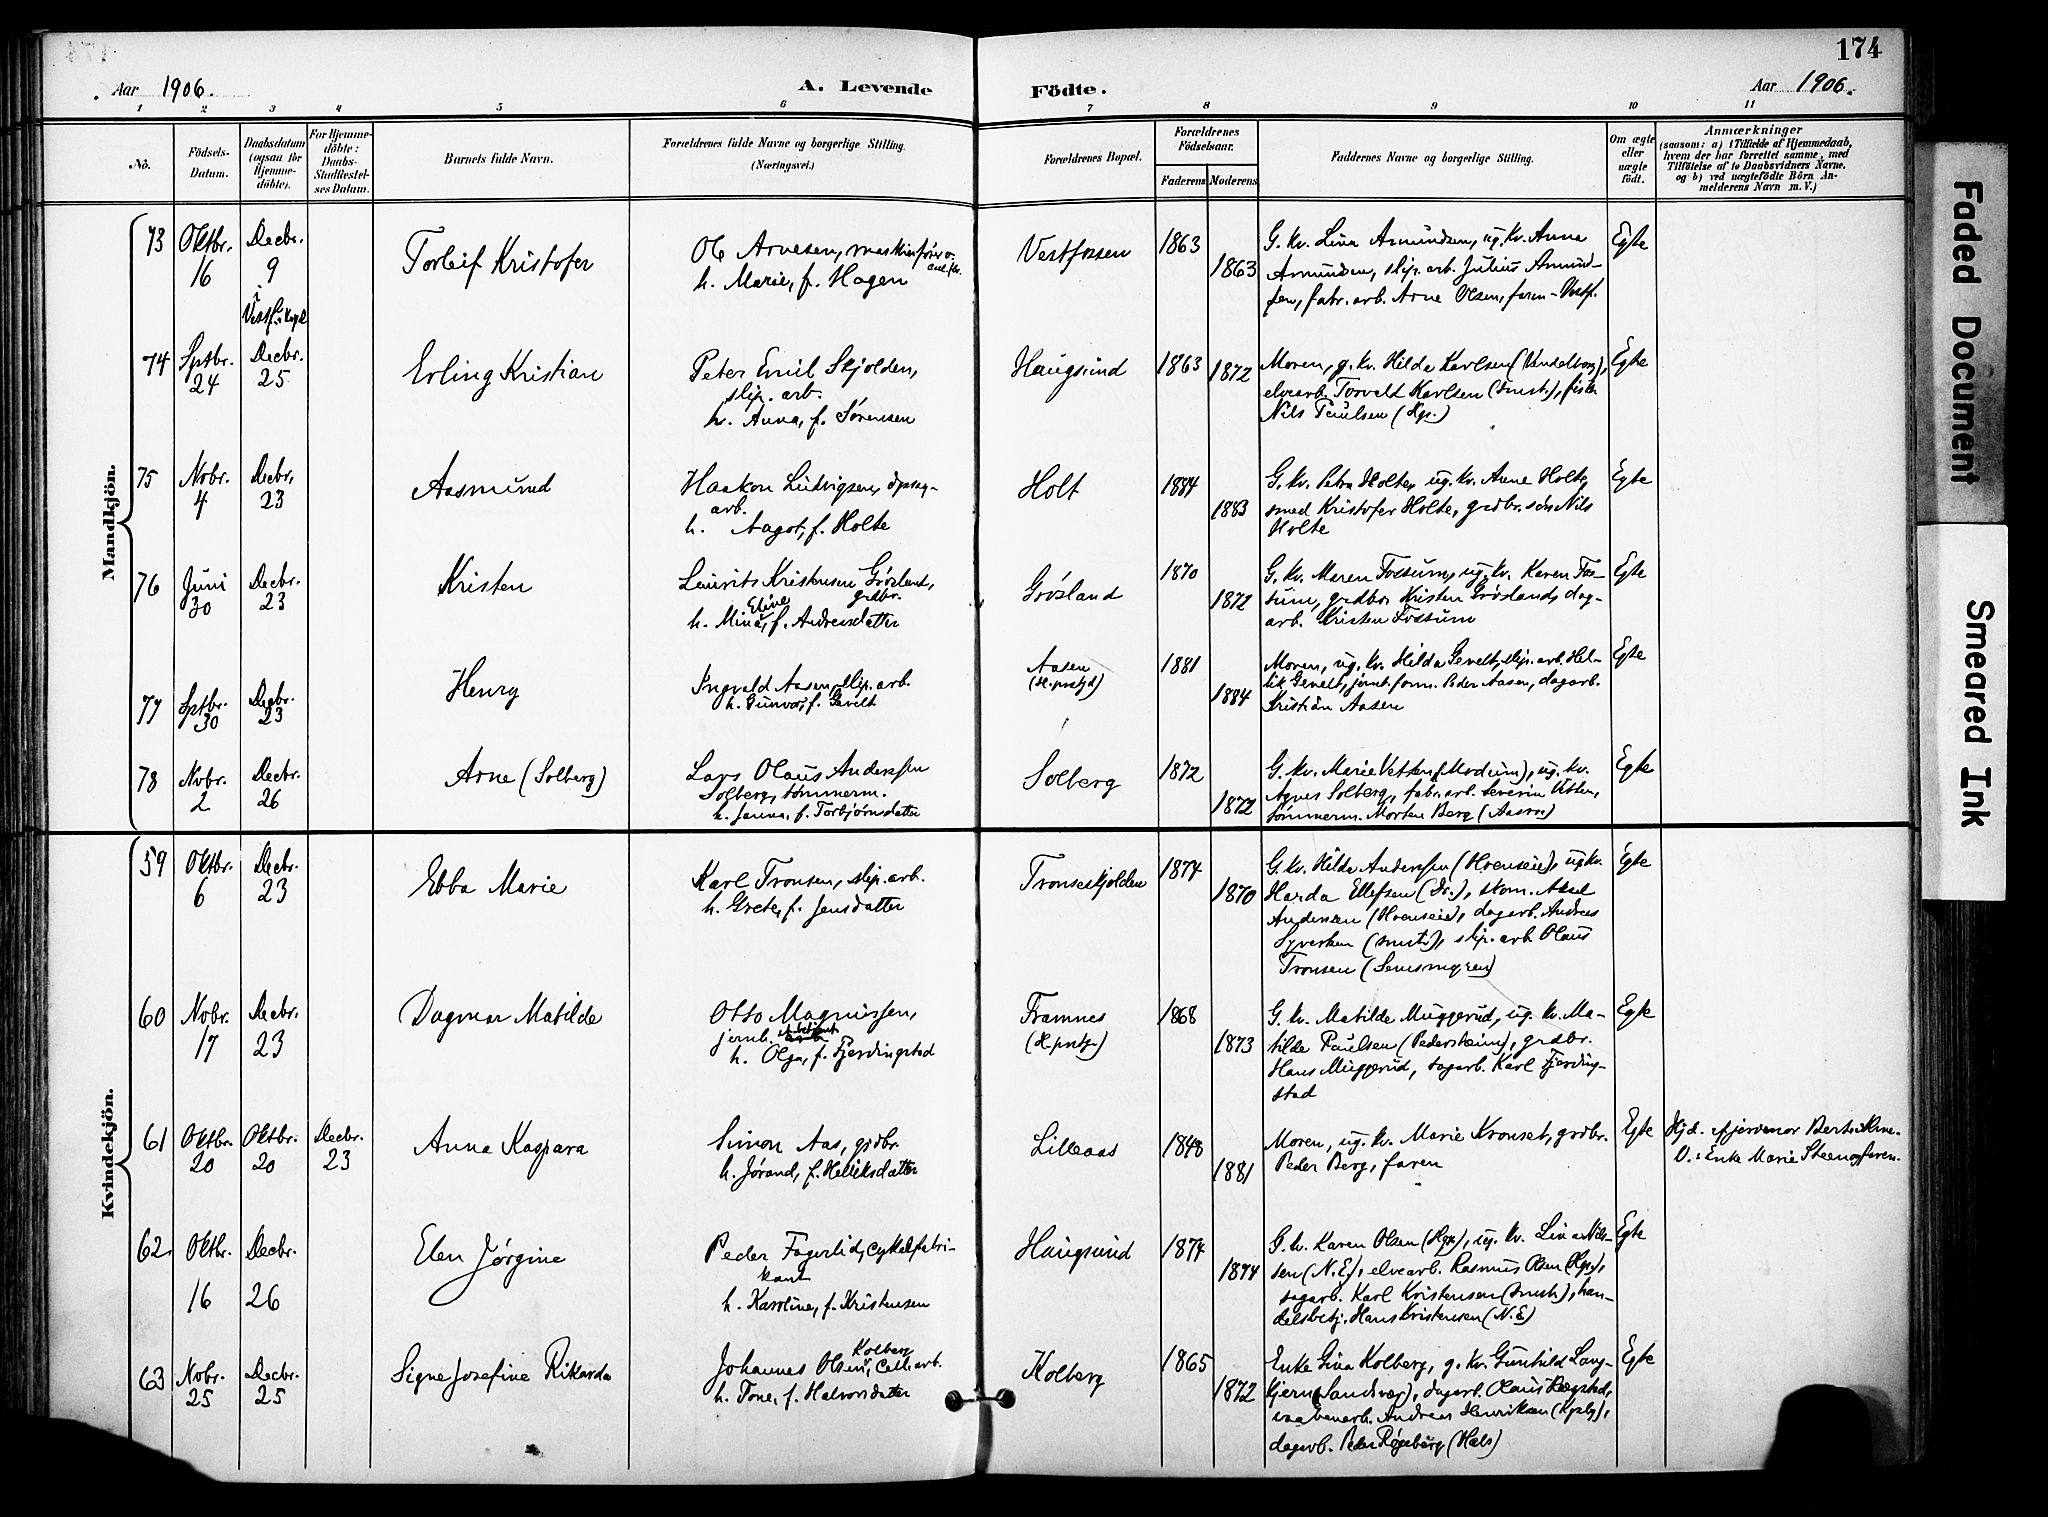 174
Aar 1906.
A. Levende Födte.
Aar 1906.
1 2 3 4 5 6 7 8 9 10 11
No.
Födsels-
Datum.
Daabsdatum
(ogsaa for
Hjemme-
döbte).
For Hjemme-
döbte:
Daabs-
Stadfæstel-
ses Datum.
Barnets fulde Navn.
Forældrenes fulde Navne og borgerlige Stilling.
(Næringsvei.)
Forældrenes Bopæl.
Forældrenes
Födselsaar.
Faderens Moderens
Faddernes Navne og borgerlige Stilling.
Om ægte
eller
uægte
födt.
Anmærkninger
(saasom: a) i Tilfælde af Hjemmedaab,
hvem der har forrettet samme, med
Tilföielse af to Daabsvidners Navne,
og b) ved uægtefödte Börn An-
melderens Navn m. V.)
Mandkjön.
73 Oktbr. 16
Decbr. 9
i Vestf. kapel
Torleif Kristofer
Ole Arnesen, maskinfører
h. Marie, f. Hagen
Vestfossen
1863
1863
G. kv. Lina Asmundsen, ug. kv. Anna
Asmundsen, slip. arb. Julius Asmund-
sen, fabr. arb. Arne Olsen, faren - Vestf.
Egte
74 Sptbr. 24
Decbr. 25
Erling Kristian
Peter Emil Skjolden,
slip. arb.
h. Anna, f. Sørensen
Haugsund
1863
1872
Moren, g. kv. Hilda Karlsen
elvearb. Torvald Karlsen (smst.), fisker
Nils Paulsen (Hgs.)
Egte
75 Nobr. 4
Decbr. 23
Aasmund
Haakon Ludvigsen,
arb.
h. Aagot, f. Holte
Holt
1884
1883
G. kv. Petra Holte, ug. kv. Anne Holte,
smed Kristofer Holte, grdbr. søn Nils
Holte
Egte
76 Juni 30
Decbr. 23
Kristen
Laurits Kristensen Grøsland,
grdbr.
h. Mina Eline, f. Andreasdatter
Grøsland
1870
1872
G. kv. Maren Fossum, ug. kv. Karen Fos-
sum, grdbr. Kristen Grøsland, dag-
arb. Kristen Fossum
Egte
77 Sptbr. 30
Decbr. 23
Henry
Ingvald Aasen, slip. arb.
h. Gunvor, f. Gevelt
Aasen
(H. prstgd)
1881
1884
Moren, ug. kv. Hilda Gevelt, slip. arb. Hel-
lik Gevelt, jernb. form. Peder Aasen, dagarb.
Kristian Aasen
Egte
78 Nobr. 2
Decbr. 26
Arne (Solberg)
Lars Olaus Anderssen
Solberg, tømmerm.
h. Janna, f. Torbjørnsdatter
Solberg
1872
1872
G. kv. Marie Vetten (Modum), ug. kv.
Agnes Solberg, fabr. arb. Severin Vetten,
tømmerm. Morten Berg
Egte
Kvindekjön.
59 Oktbr. 6
Decbr. 23
Ebba Marie
Karl Tronsen, slip. arb.
h. Grete, f. Jensdatter
Tronseskjolden
1874
1870
G. kv. Hilda Anderssen (Hoenseie), ug. kv.
Harda Ellefsen (Dr.), skom. Aksel
Andersen (Hoenseie), dagarb. Andreas
Syversen (smst.), slip. arb. Olaus
Tronsen
Egte
60 Nobr. 17
Decbr. 23
Dagmar Matilde
Otto Magnussen,
jernb.
h. Olga, f. Fjerdingstad
Framnes
(H. prstgj.)
1868
1873
G. kv. Matilde Muggerud, ug. kv. Ma-
tilde Paulsen (Pedersheim), grdbr.
Hans Muggerud, dagarb. Karl Fjerding-
stad
Egte
61 Oktbr. 20
Oktbr. 20
Decbr. 23
Anna Kaspara
Simon Aas, grdbr.
h. Jørand, f. Helliksdatter
Lilleaas
1848
1881
Moren, ug. kv. Marie Kronset, grdbr.
Peder Berg, faren
Egte
Hjd. af jordmor
V.: Enke Marie Steen og faren.
62 Oktbr. 16
Decbr. 26
Elen Jørgine
Peder Fagerlid, cykelfabri-
kant
h. Karoline, f. Kristensen
Haugsund
1874
1874
G. kv. Karen Olsen (Hgs.), ug. kv. Lina Nil-
sen (N. E.), elvearb. Rasmus Olsen (Hgs.),
dagarb. Karl Kristensen (smst.), han-
delsbetj. Hans Kristensen (N. E.)
Egte
63 Nobr. 25
Decbr. 25
Signe Josefine Rikarda
Johannes Olsen Kolberg, cell. arb.
h. Tone, f. Halvorsdatter
Kolberg
1865
1872
Enke Gina Kolberg, g. kv. Gunhild Lang-
kjern (Sandsvær), dagarb. Olaus Hægstad,
vaabenarb. Andreas Henriksen (Kgsbg),
dagarb. Peder Røgeberg (Hals)
Egte
Faded Document
Smeared Ink